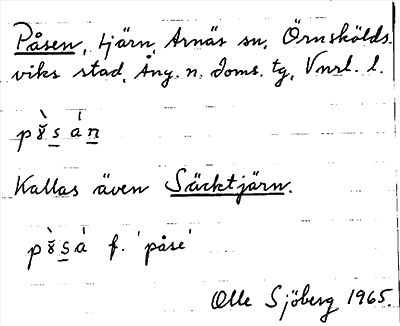 Påsen, tjärn, Arnäs sn, Örnskölds-
viks stad, Ång. n. doms. tg, Vnrl. l.
Kallas även Säcktjärn.
f. 'påse'
Olle Sjöberg 1965.